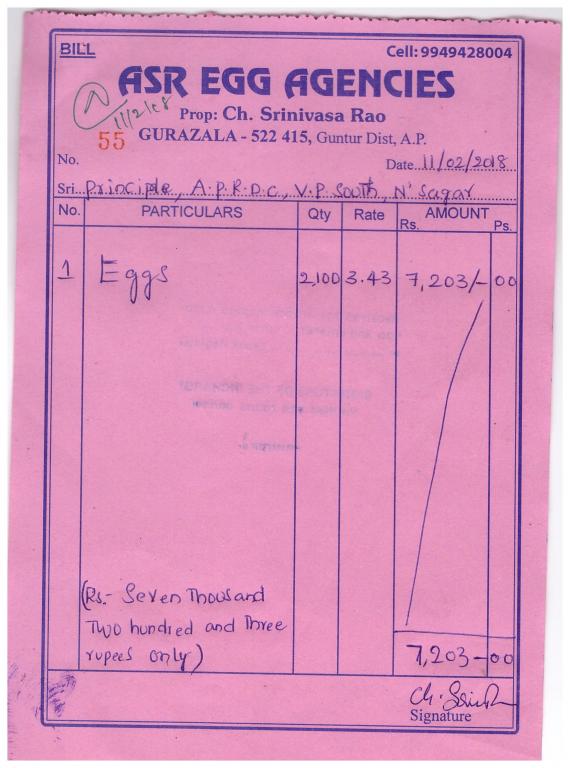 BILL
Cell: 9949428004
ASR EGG AGENCIES
Prop: Ch. Srinivasa Rao
11/2/18
55
GURAZALA - 522 415, Guntur Dist, A.P.
No.
Date 11/02/2018
Sri. Principle, A.P.R.D.C., V.P. South, N' Sagar
No. PARTICULARS Qty Rate AMOUNT
Rs. Ps.
1 Eggs 2,100 3.43 7,203/- 00
(Rs.- Seven Thousand
Two hundred and Three
rupees only)
7,203-00
Signature